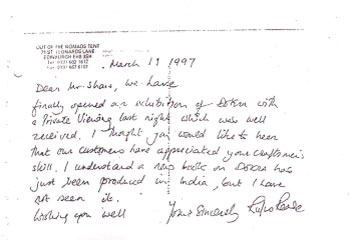 OUT OF THE NOMADS TENT
ST LEONARDS LANE
EDINBURGH EH8 9SH
March 11 1997
Dear Mr Shaw, We have
finally opened an exhibition of DOKRA with
a Private Viewing last night which was well
received. I thought you would like to hear
that our customers have appreciated your craftsmen's
skill. I understand a new book on DOKRA has
just been produced in India, but I have
not seen it.
Wishing you well
Yours Sincerely